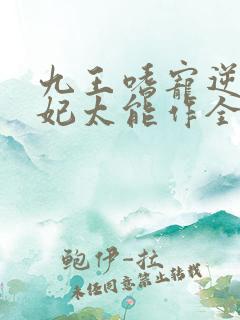 九王嗜寵逆
妃太能作全
鲍伊-拉
未经同意禁止转载